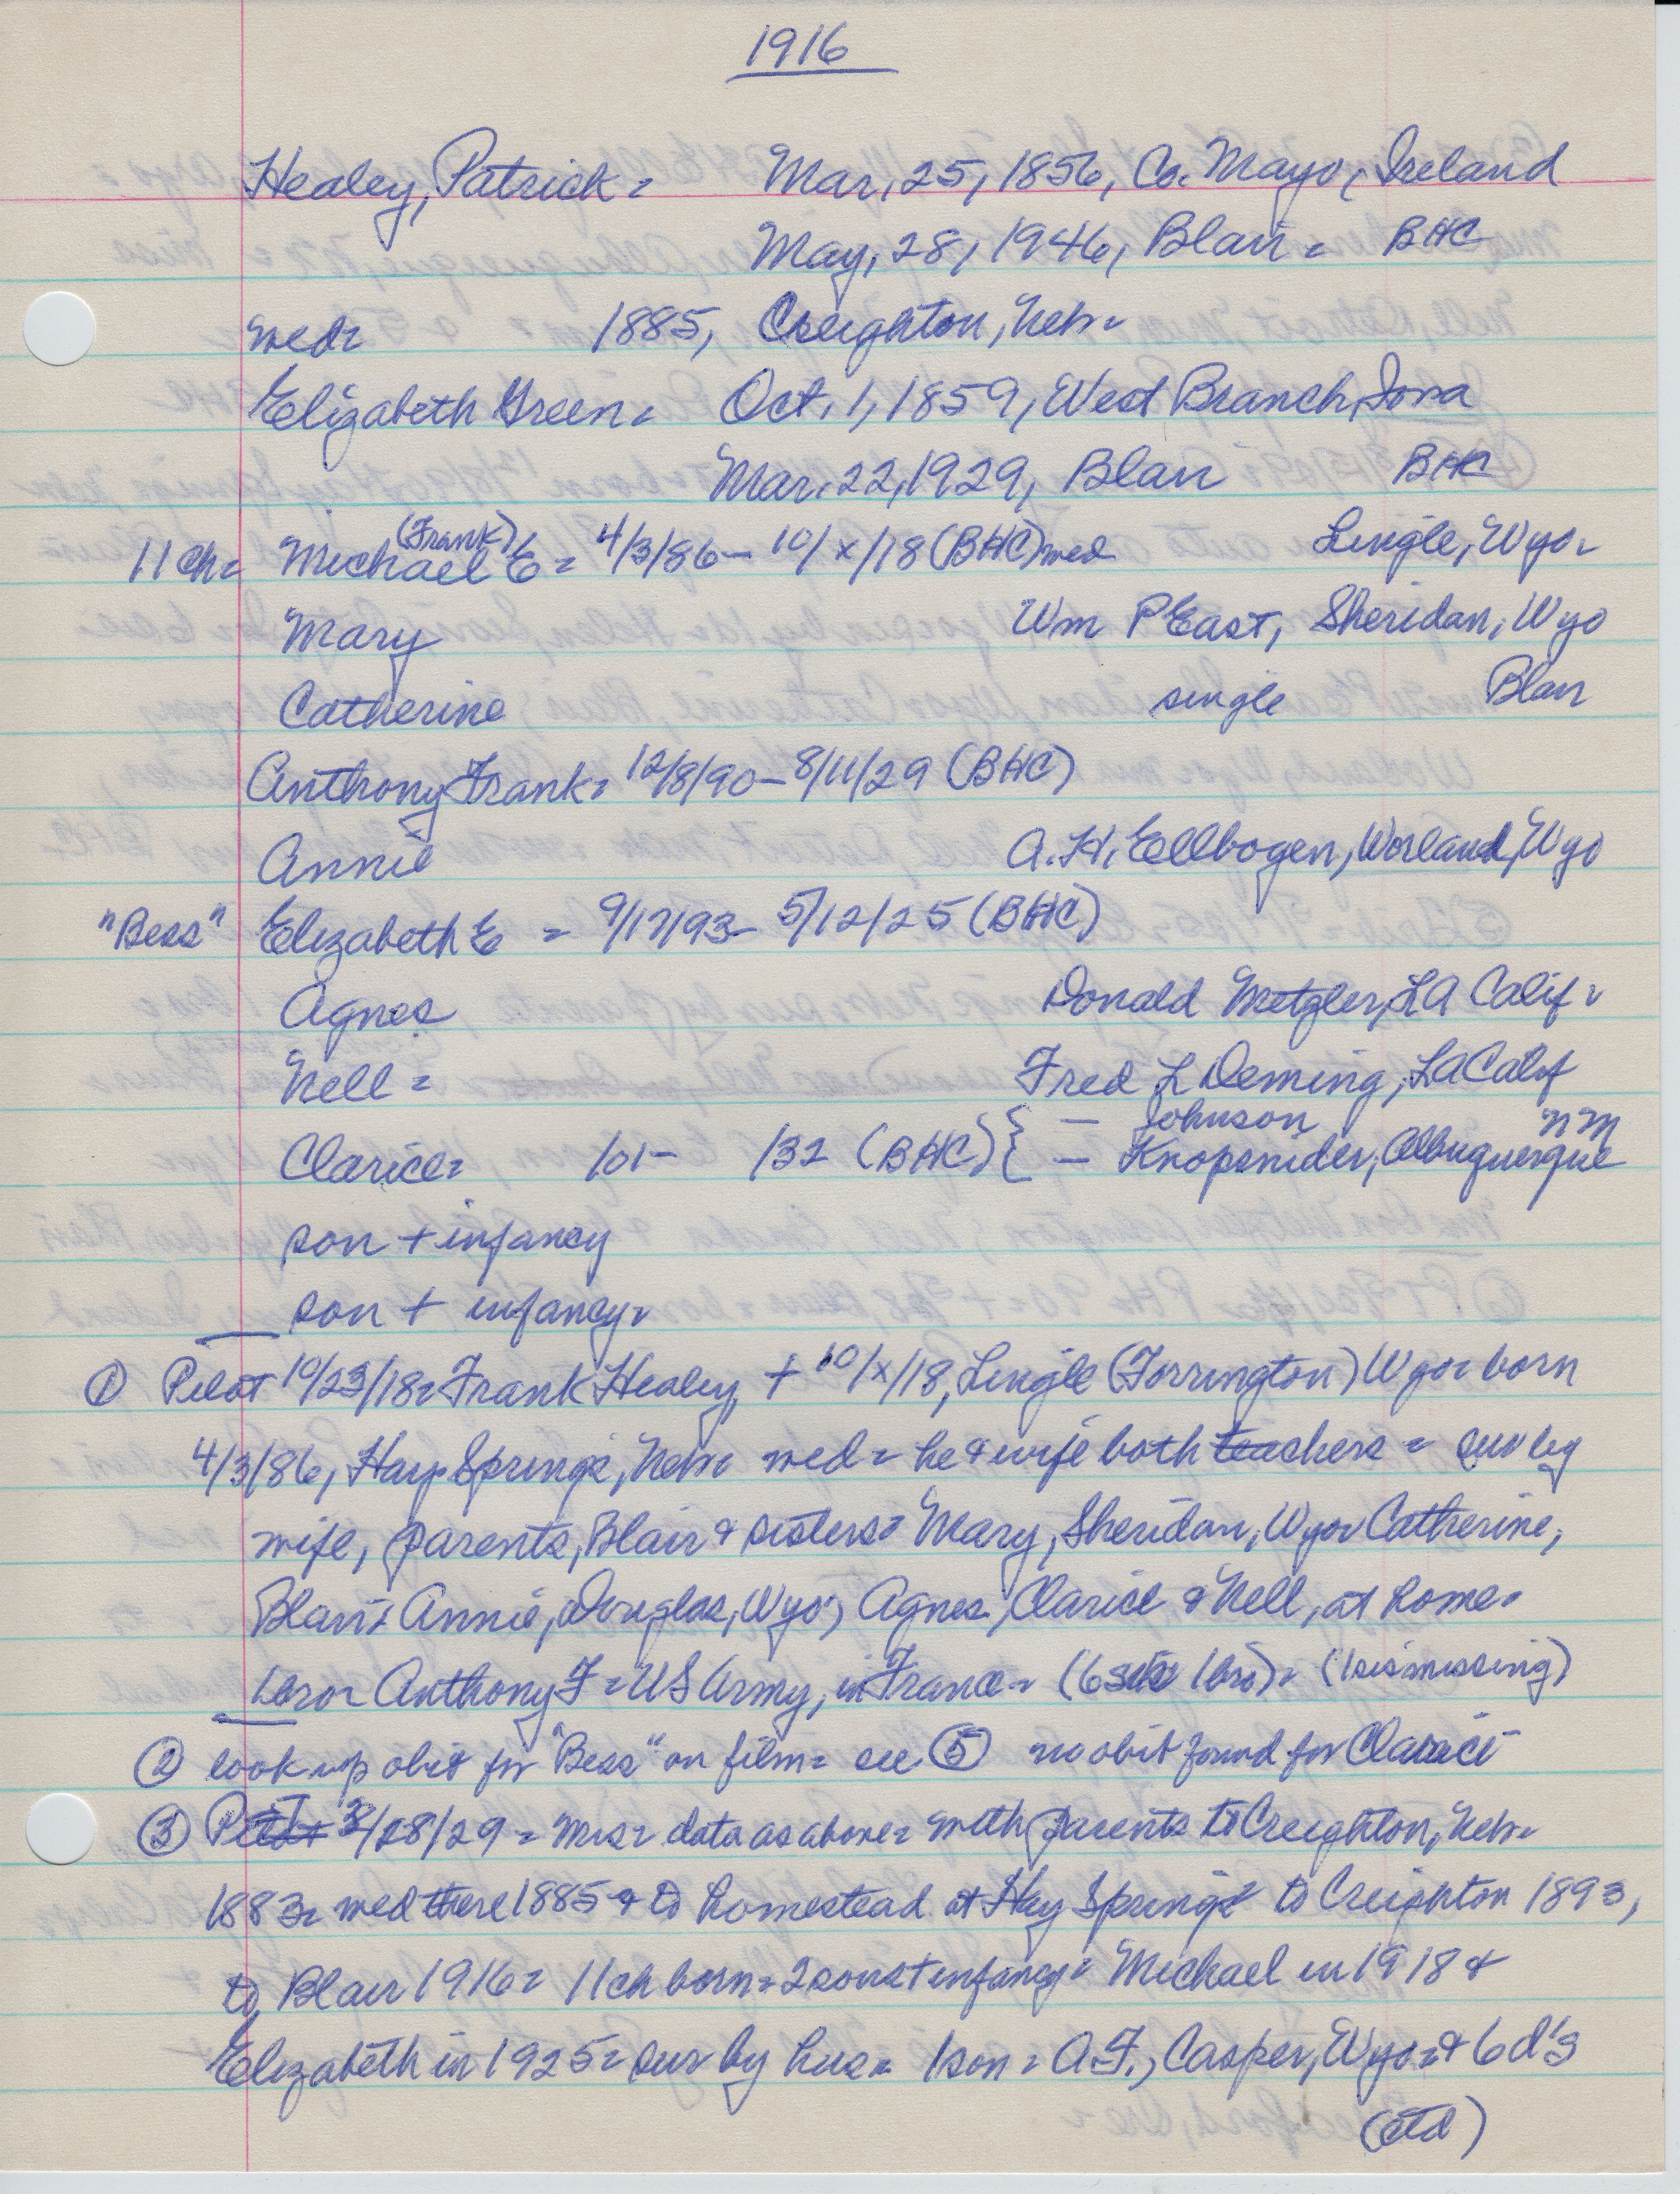 1916
Healey, Patrick = Mar, 25, 1856, Co. Mayo, Ireland
May, 28, 1946, Blair = BHC
med= 1885, Creighton, Nebr=
Elizabeth Green= Oct. 1, 1859, West Branch, Iowa
Mar. 22, 1929, Blair BHC
11 ch= Michael (Frank) E = 4/3/86 - 10/x/18 (BHC) med Lingle, Wyo=
Mary Wm P East, Sheridan, Wyo
Catherine single Blair
Anthony Frank= 12/8/90 - 8/11/29 (BHC)
Annie A. H. Ellbogen, Worland, Wyo
"Bess" Elizabeth E = 9/17/93 - 5/12/25 (BHC)
Agnes Donald Metzler, LA Calif=
Nell = Fred L Deming, LA Calif
Clarice= /01- /32 (BHC) { - Johnson
- Knopsnider, Albuquerque NM
son + infancy
son + infancy=
① Pilot 10/23/18= Frank Healey, + 10/x/18, Lingle (Torrington) Wyo= born
4/3/86, Hay Springs, Nebr= med = he & wife both teachers = sur by
wife, parents, Blair & sisters= Mary, Sheridan, Wyo= Catherine,
Blair= Annie, Douglas, Wyo; Agnes, Clarice & Nell, at home=
bro= Anthony F = US Army, in France = (6 sis 1 bro)= (1 sis missing)
② look up obit for "Bess" on film= see ⑤ no obit found for Clarice
③ PT 3/28/29 = Mrs= data as above= with parents to Creighton, Nebr=
1883= med there 1885 & to homestead at Hay Springs= to Creighton 1893,
to Blair 1916= 11 ch born= 2 sons + infancy= Michael in 1918 &
Elizabeth in 1925= sur by hus= 1 son = A.F., Casper, Wyo= & 6 d's
(ctd)